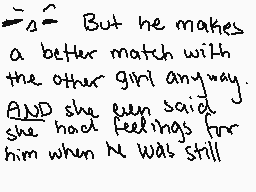 But he makes
a better match with
the other girl anyway.
AND she even said
she had feelings for
him when he was still